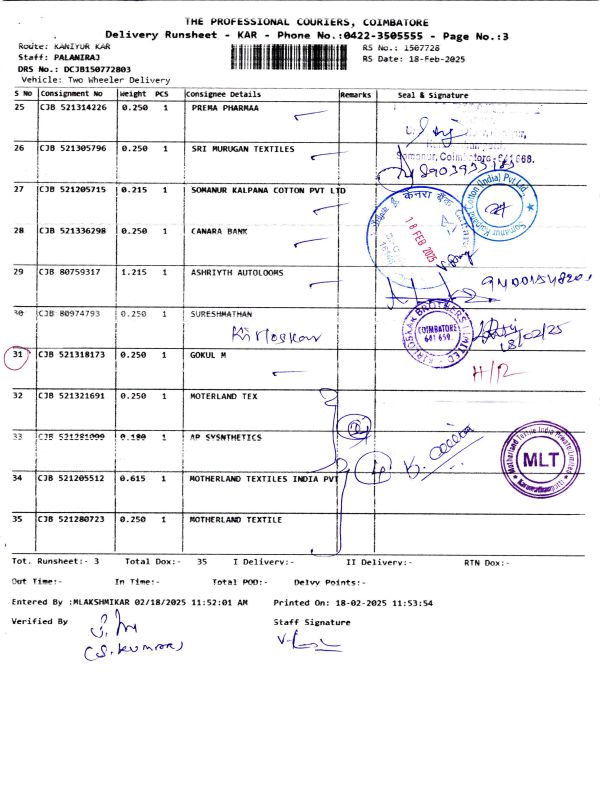 THE PROFESSIONAL COURIERS, COIMBATORE
Delivery Runsheet - KAR - Phone No.:0422-3505555 - Page No.:3
Route: KANIYUR KAR
RS No.: 1507728
Staff: PALANIRAJ
RS Date: 18-Feb-2025
DRS No.: DCJB150772803
Vehicle: Two Wheeler Delivery
S No Consignment No Weight PCS Consignee Details Remarks Seal & Signature
25 CJB 521314226 0.250 1 PREMA PHARMAA
26 CJB 521305796 0.250 1 SRI MURUGAN TEXTILES
Somanur, Coimbatore-641668.
8903933185
27 CJB 521205715 0.215 1 SOMANUR KALPANA COTTON PVT LTD
28 CJB 521336298 0.250 1 CANARA BANK
केनरा बैंक
18 FEB 2025
29 CJB 80759317 1.215 1 ASHRIYTH AUTOLOOMS
30 CJB 80974793 0.250 1 SURESHMATHAN
Kirloskar
KIRLOSKAR BROTHERS LIMITED
COIMBATORE
641 659.
18/02/25
31 CJB 521318173 0.250 1 GOKUL M
H/R
32 CJB 521321691 0.250 1 MOTERLAND TEX
33 CJB 521281099 0.180 1 AP SYSNTHETICS
34 CJB 521205512 0.615 1 MOTHERLAND TEXTILES INDIA PVT
Motherland Textile India Private Limited
MLT
35 CJB 521280723 0.250 1 MOTHERLAND TEXTILE
Tot. Runsheet:- 3 Total Dox:- 35 I Delivery:- II Delivery:- RTN Dox:-
Out Time:- In Time:- Total POD:- Delvy Points:-
Entered By :MLAKSHMIKAR 02/18/2025 11:52:01 AM Printed On: 18-02-2025 11:53:54
Verified By Staff Signature
(S. Kumar)